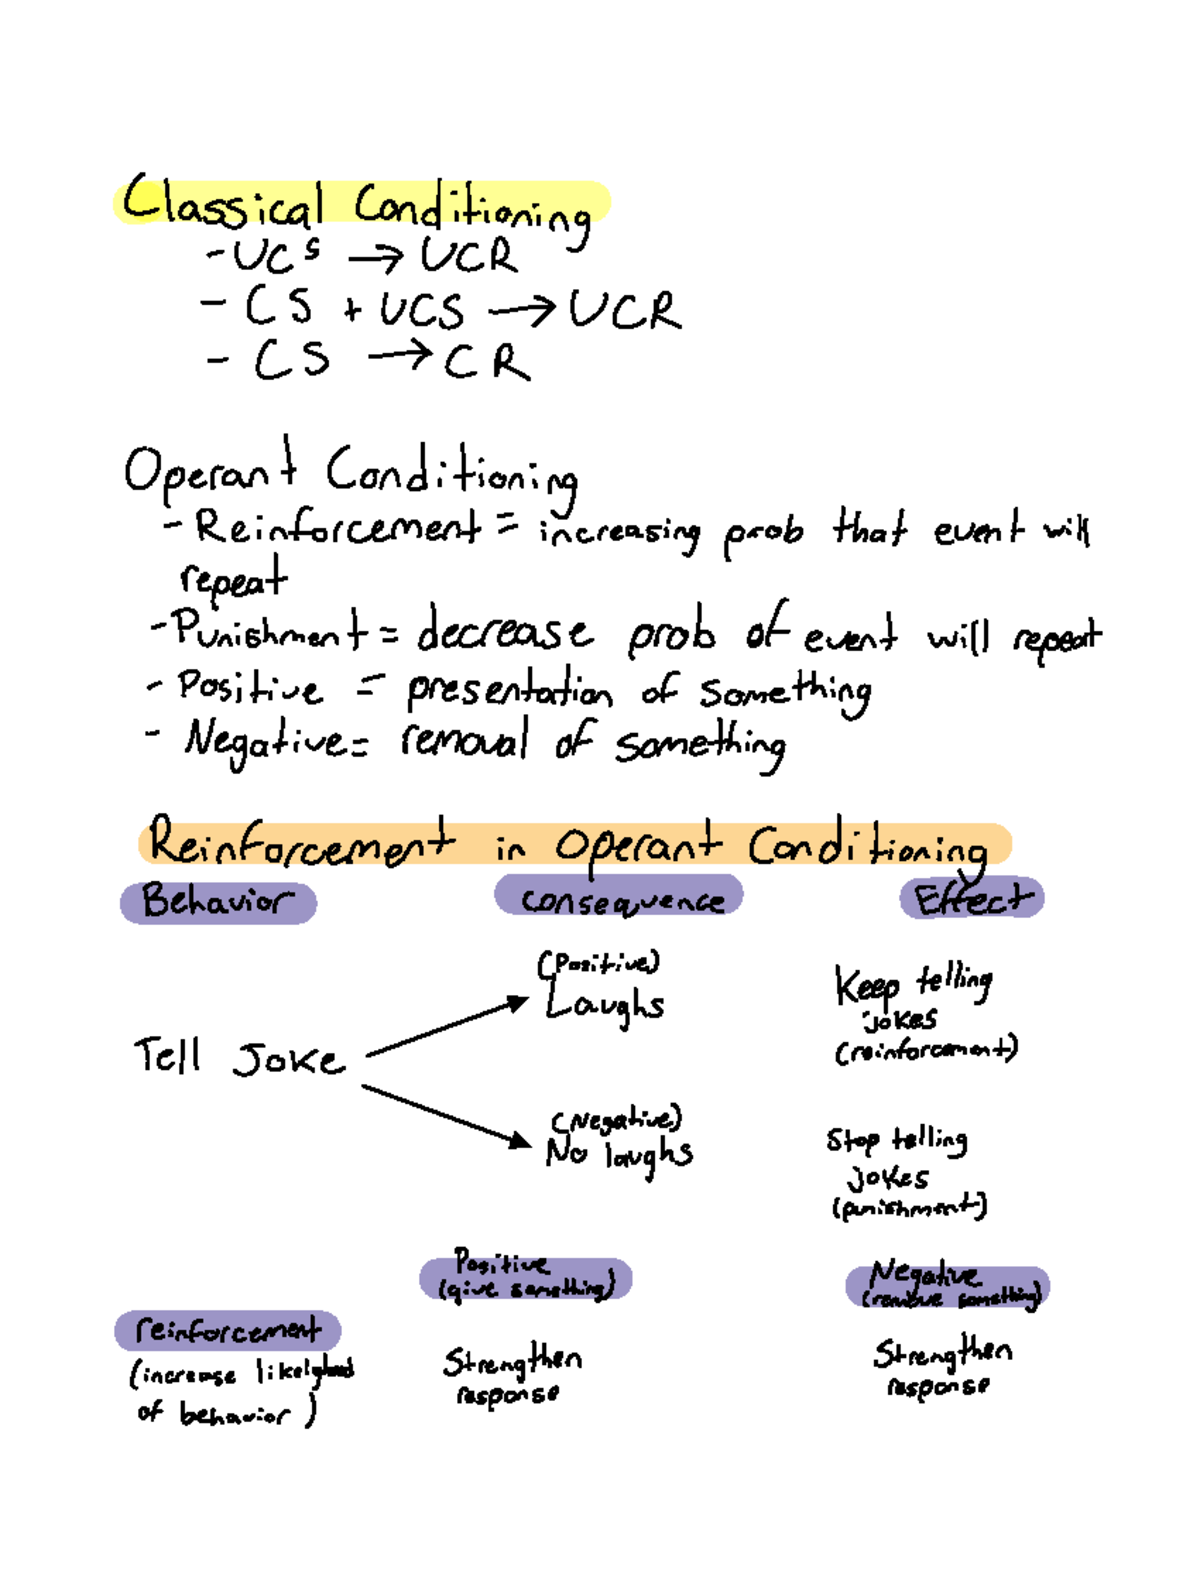 Classical Conditioning
- UCS → UCR
- CS + UCS → UCR
- CS → CR
Operant Conditioning
- Reinforcement = increasing prob that event will
repeat
- Punishment = decrease prob of event will repeat
- Positive = presentation of something
- Negative = removal of something
Reinforcement in Operant Conditioning
Behavior consequence Effect
(Positive)
Laughs
Keep telling
jokes
(reinforcement)
Tell Joke
(Negative)
No laughs
Stop telling
jokes
(punishment)
Positive
(give something)
Negative
(remove something)
reinforcement
(increase
of behavior)
Strengthen
response
Strengthen
response